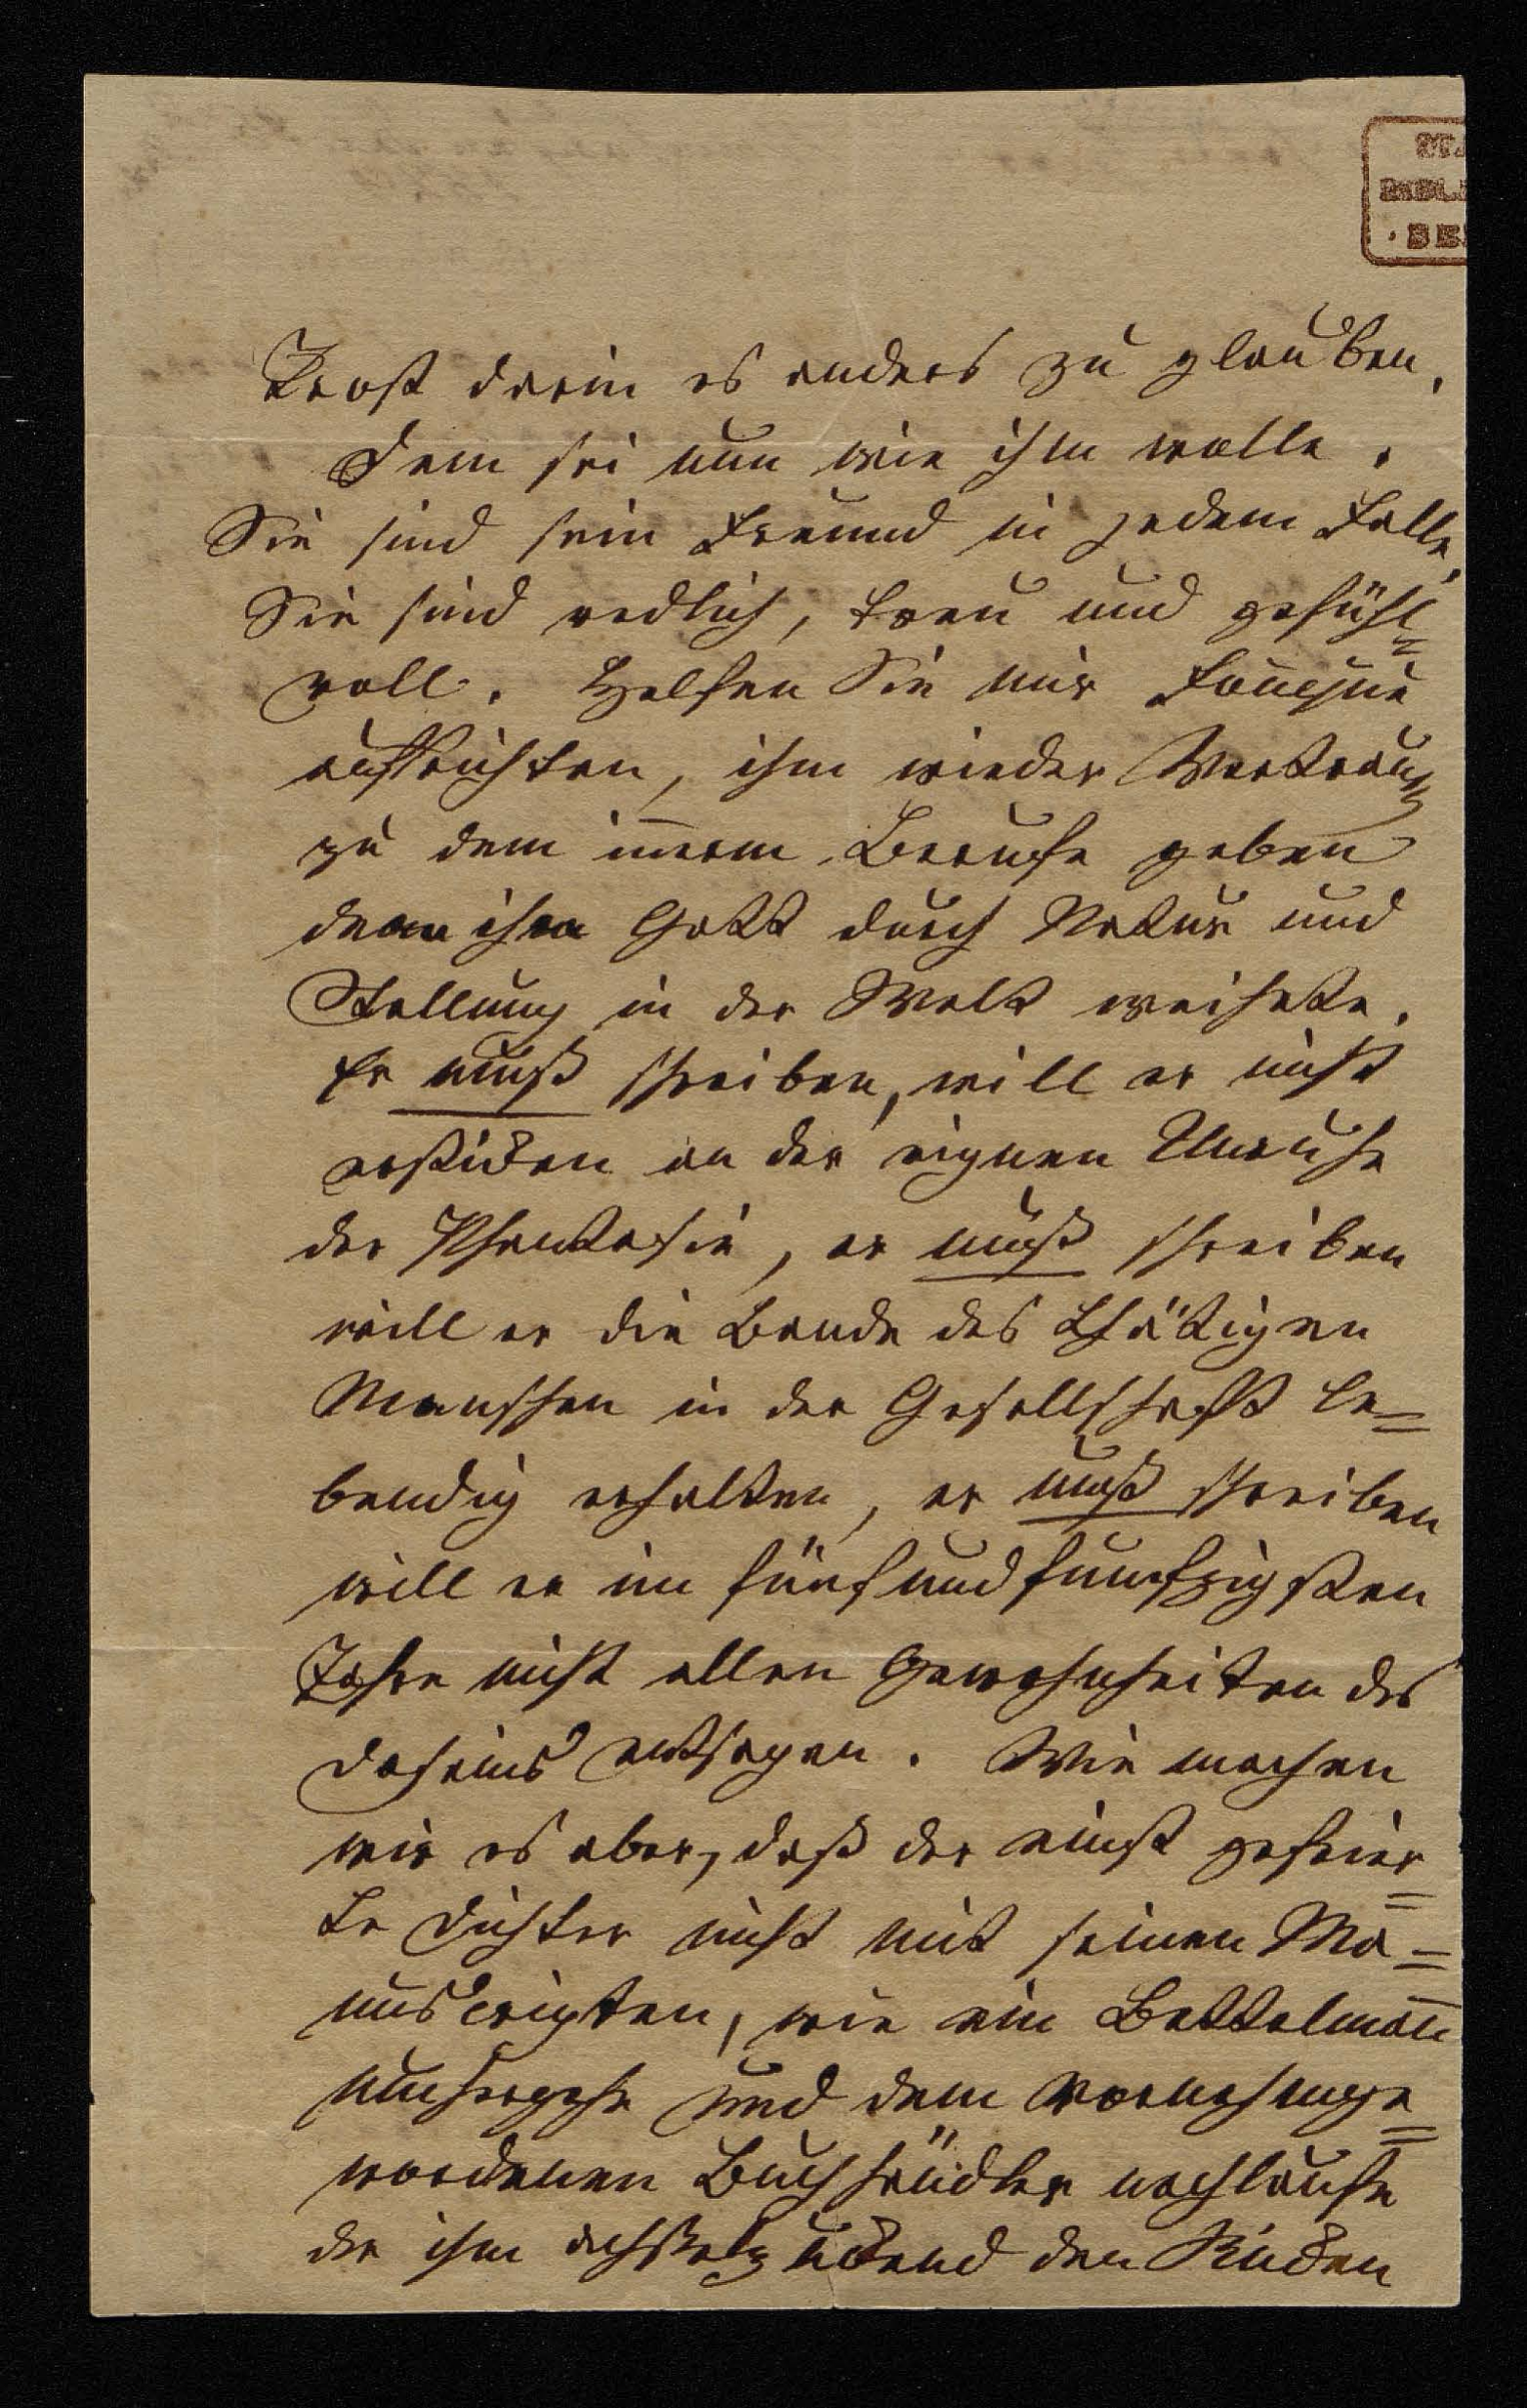 Trost darin es anders zu glauben.
Dem sei nun wie ihm wolle.
Sie sind sein Freund in jedem Falle,
Sie sind redlich, treu und gefühl=
voll. Helfen Sie mir Fouqué
aufrichten, ihm wieder Vertraun
zu dem innern Berufe geben
dem ihn Gott durch Natur und
Stellung in der Welt weihete.
Er muß schreiben, will er nicht
ersticken an der eignen Unruhe
der Phantasie, er muß schreiben
will er die Bande des thätigen
Menschen in der Gesellschaft le=
bendig erhalten, er muß schreiben
will er im fünfundfunfzigsten
Jahre nicht allen Gewohnheiten des
Daseins entsagen. Wie machen
wir es aber, daß der einst gefeier=
te Dichter nicht mit seinen Ma=
nuscripten, wie ein Bettelmañ
umhergehe und dem vornehmge=
wordenen Buchhändler nachlaufe
der ihm achselzuckend den Rücken